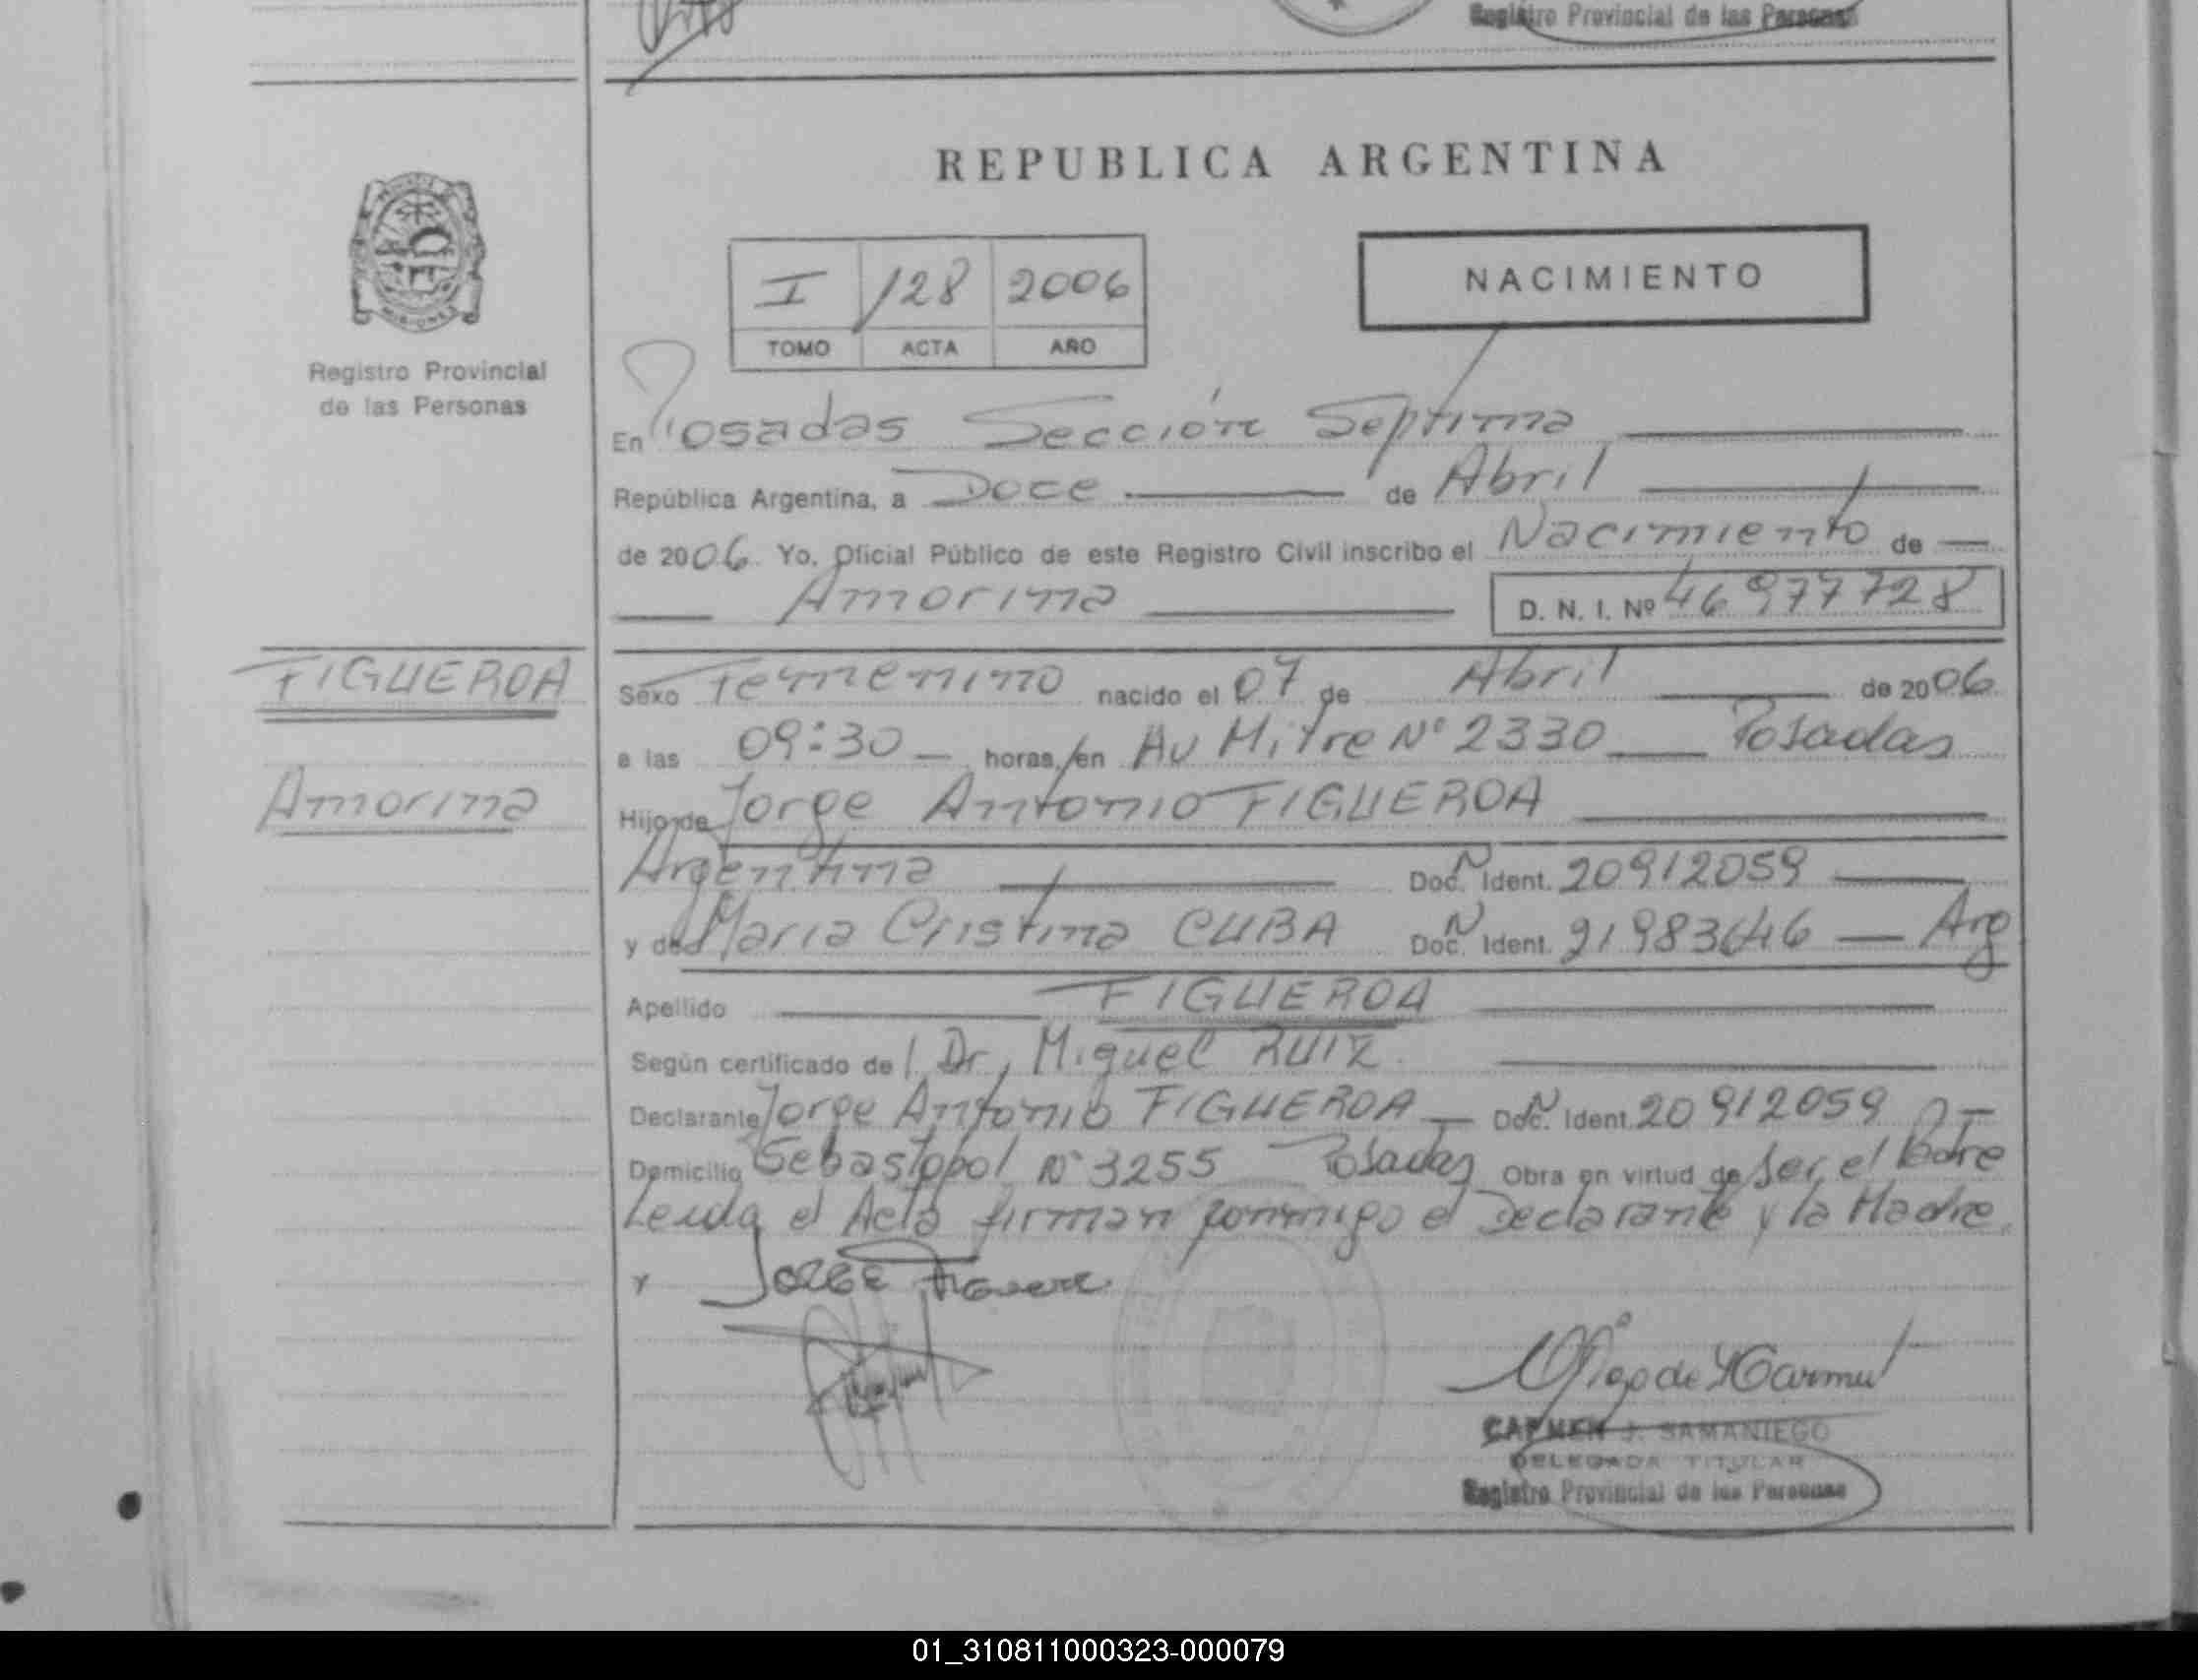 Registro Provincial de las Personas
REPUBLICA ARGENTINA
MISIONES
Registro Provincial
de las Personas
I 128 2006
TOMO ACTA AÑO
NACIMIENTO
En Posadas Sección Septima
República Argentina, a Doce de Abril
de 2006. Yo, Oficial Público de este Registro Civil inscribo el Nacimiento de
Amorina D. N. I. Nº 46977728
FIGUEROA
Amorina
Sexo Femenino nacido el 07 de Abril de 2006
a las 09:30 horas, en Av Mitre Nº 2330 Posadas
Hijo de Jorge Antonio FIGUEROA
Argentina Doc. Ident. 20912059
y de Maria Cristina CUBA Doc. Ident. 21983646 Arg
Apellido FIGUEROA
Según certificado de l Dr, Miguel RUIZ
Declarante Jorge Antonio FIGUEROA Doc. Ident. 20912059
Domicilio Sebastopol Nº 3255 Posadas Obra en virtud de ser el Padre
Leida el Acta firman conmigo el Declarante y la Madre.
y Jorge
CARMEN J. SAMANIEGO
DELEGADA TITULAR
Registro Provincial de las Personas
01_310811000323-000079